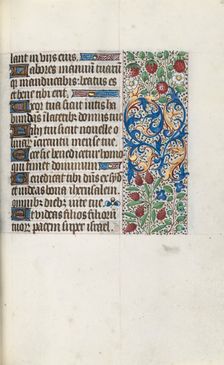 lant in viis eius.
Labores manuum tuaru
qr manducabis: beatus es
et bene tibi erit.
Uxor tua sicut vitis ha
bundas: i lateribz domus tue
Filij tui sicut novelle o
in circuitu mense tue.
Ecce sic benedicetur homo
qui timet dominum
Benedicat tibi dns ex syo
et videas bona iherusalem
omnibz diebz vite tue.
Et videas filios filioru
tuor pacem super israel.